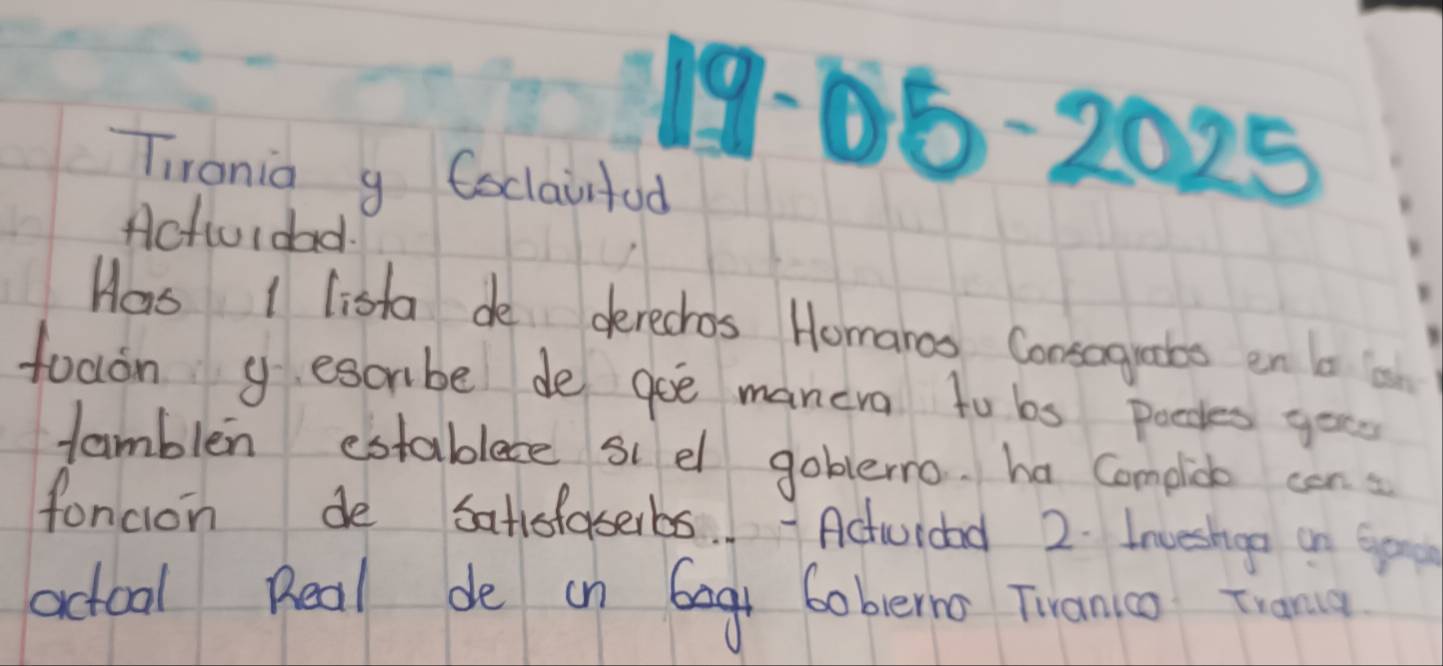 19-05-2025
Tirania y Esclavitud
Actividad.
Has 1 lista de derechos Homanos Consagrados en la con
tución y escribe de qoé manera tu los poedes
también establece si el gobierno. ha Complido con su
fonción de satisfaserlos.. - Actividad 2. Investiga un
actoal Real de un Gobierno Tiranico